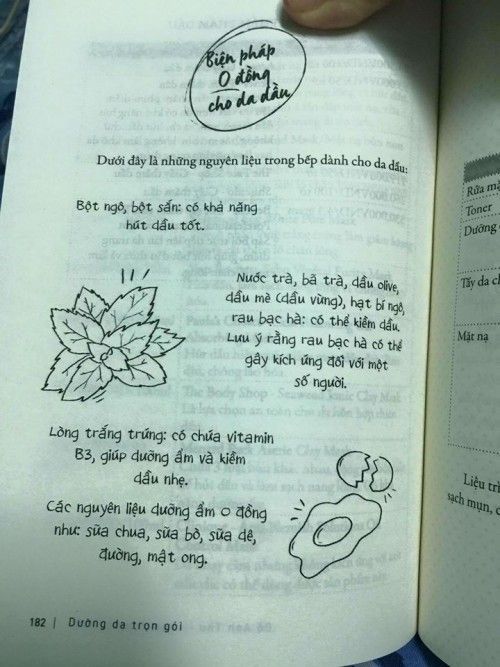 Biện pháp
0 đồng
cho da dầu
Dưới đây là những nguyên liệu trong bếp dành cho da dầu:
Bột ngô, bột sắn: có khả năng
hút dầu tốt.
Nước trà, bã trà, dầu olive,
dầu mè (dầu vừng), hạt bí ngô,
rau bạc hà: có thể kiềm dầu.
Lưu ý rằng rau bạc hà có thể
gây kích ứng đối với một
số người.
Lòng trắng trứng: có chứa vitamin
B3, giúp dưỡng ẩm và kiềm
dầu nhẹ.
Các nguyên liệu dưỡng ẩm 0 đồng
như: sữa chua, sữa bò, sữa dê,
đường, mật ong.
182 | Dưỡng da trọn gói
Rửa mặ
Toner
Dưỡng
Tẩy da c
Mặt nạ
Liệu tr
sạch mụn,